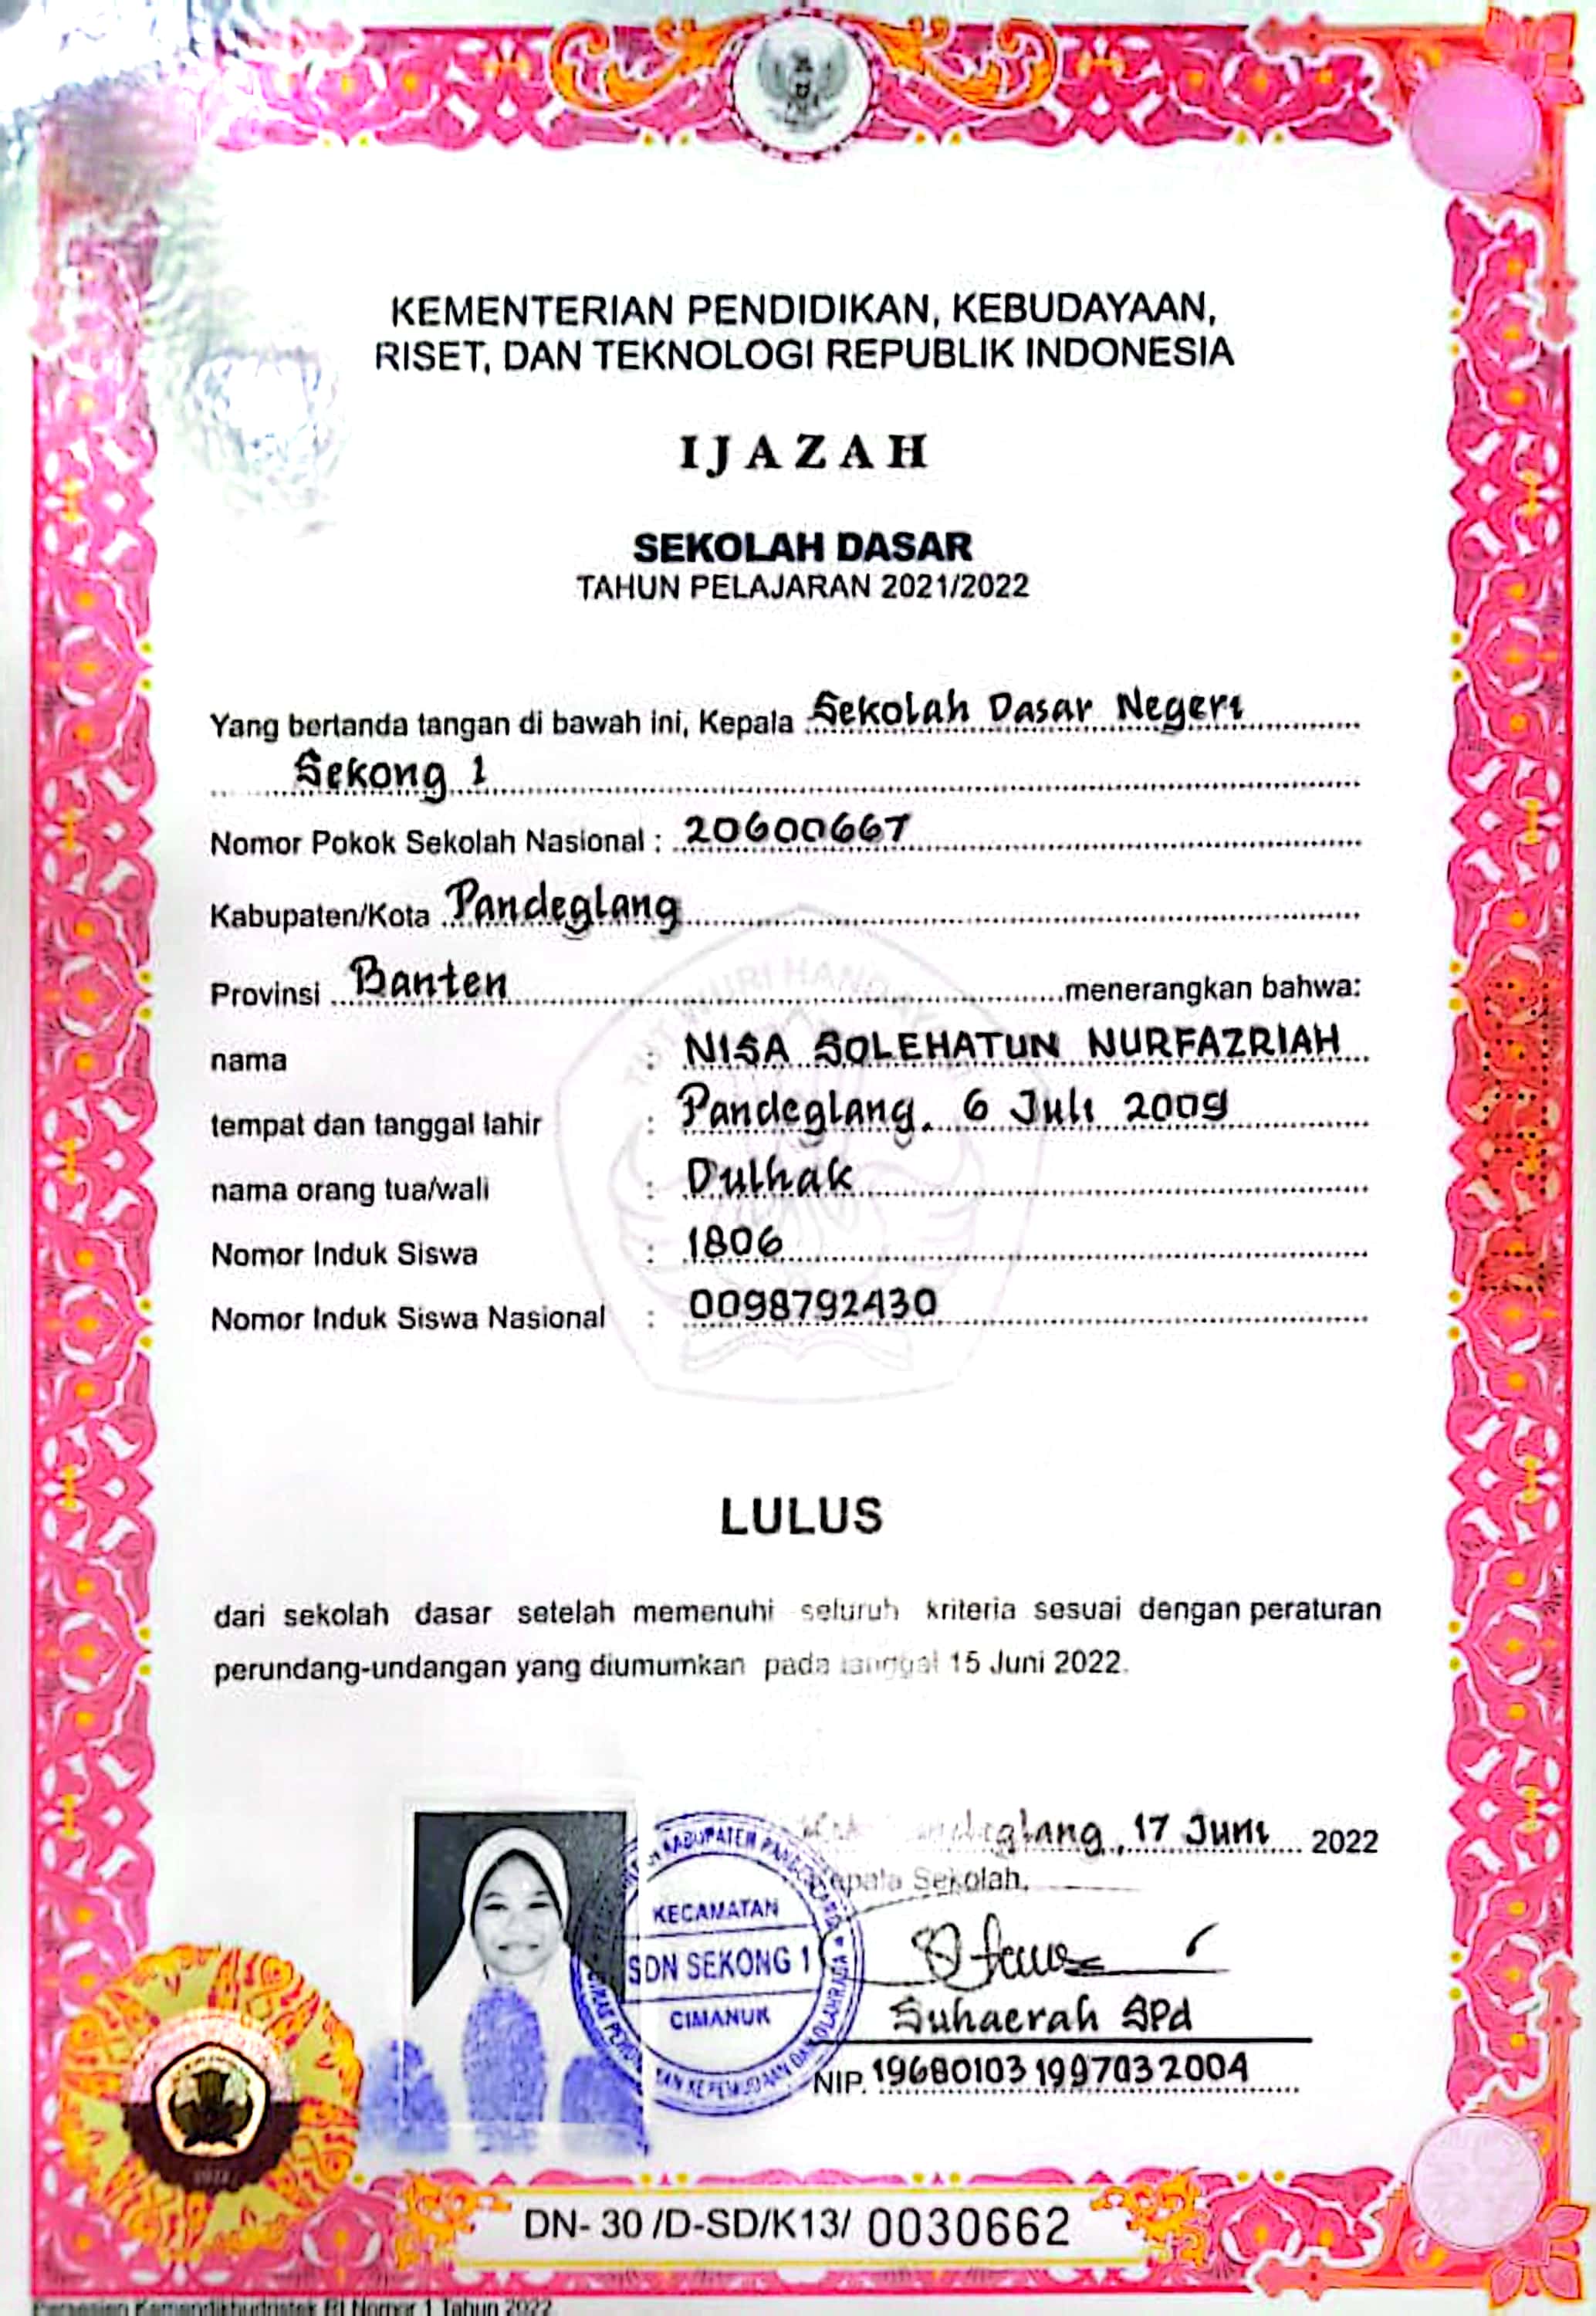 KEMENTERIAN PENDIDIKAN, KEBUDAYAAN,
RISET, DAN TEKNOLOGI REPUBLIK INDONESIA
IJAZAH
SEKOLAH DASAR
TAHUN PELAJARAN 2021/2022
Yang bertanda tangan di bawah ini, Kepala Sekolah Dasar Negeri
Sekong 1
Nomor Pokok Sekolah Nasional : 20600667
Kabupaten/Kota Pandeglang
Provinsi Banten menerangkan bahwa:
nama : NISA SOLEHATUN NURFAZRIAH
tempat dan tanggal lahir : Pandeglang, 6 Juli 2009
nama orang tua/wali : Dulhak
Nomor Induk Siswa : 1806
Nomor Induk Siswa Nasional : 0098792430
LULUS
dari sekolah dasar setelah memenuhi seluruh kriteria sesuai dengan peraturan
perundang-undangan yang diumumkan pada tanggal 15 Juni 2022.
Pandeglang, 17 Juni 2022
Kepala Sekolah,
KABUPATEN PANDEGLANG
KECAMATAN
SDN SEKONG 1
CIMANUK
Suhaerah SPd
NIP. 196801031997032004
DN- 30 /D-SD/K13/ 0030662
Persesjen Kemendikbudristek RI Nomor 1 Tahun 2022